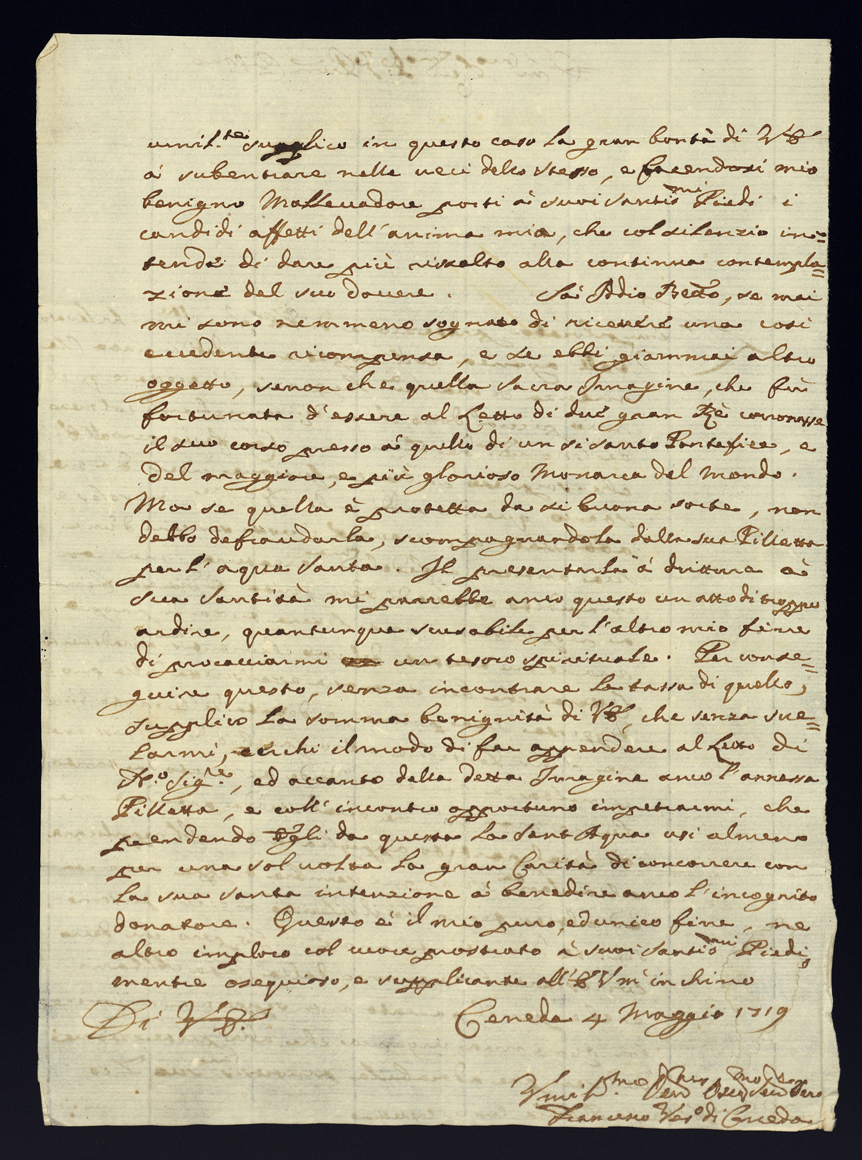 umil.te supplico in questo caso la gran bontà di V.E.
à subentrare nelle veci dello stesso, e facendosi mio
benigno Mallevadore porti à suoi santis.mi Piedi i
candidi affetti dell'anima mia, che col silenzio in=
tende di dare più risalto alla continua contempla=
zione del suo dovere. Sà Iddio Bened.to, se mai
mi sono nemmeno sognato di ricevere una così
eccedente ricompensa, e se ebbi giammai altro
oggetto, senon che quella Sacra Imagine, che fù
fortunata d'essere al Letto di due gran Rè coronasse
il suo corso presso à quello di un sì santo Pontefice, e
del maggiore, e più glorioso Monarca del mondo.
Ma se quella è protetta da sì buona sorte, non
debbo defraudarla, scompagnandola dalla sua Pilletta
per l'aqua santa. Il presentarla à drittura à
sua Santità mi parrebbe anco questo un atto di troppo
ardire, quantunque scusabile per l'altro mio fine
di procacciarmi un tesoro spirituale. Per conse=
guire questo, senza incontrare la tassa di quello,
supplico la somma benignità di V.E., che senza sve=
larmi, cerchi il modo di far appendere al Letto di
N.o Sig.re, ed accanto della detta Imagine anco l'annessa
Pilletta, e coll'incontro opportuno impetrarmi, che
prendendo Egli da questa la Sant'Aqua usi almeno
per una sol volta la gran Carità di concorrere con
la sua santa intenzione à benedire anco l'incognito
donatore. Questo è il mio puro, ed unico fine, ne
altro imploro col cuore prostrato à suoi santis.mi Piedi,
mentre osequioso, e supplicante all'E.V. m'inchino
Di V.E. Ceneda 4 Maggio 1719
Umil.mo
Francesco Ves.o di Ceneda